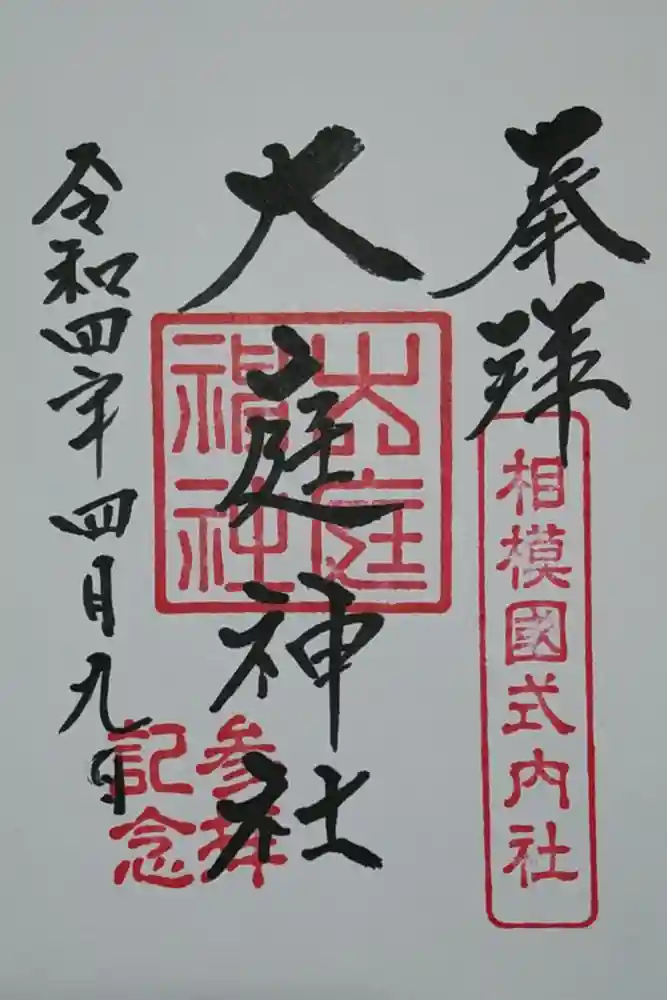 奉拜
相模國式内社
大庭神社
大庭神社
参拝
記念
令和四年四月九日